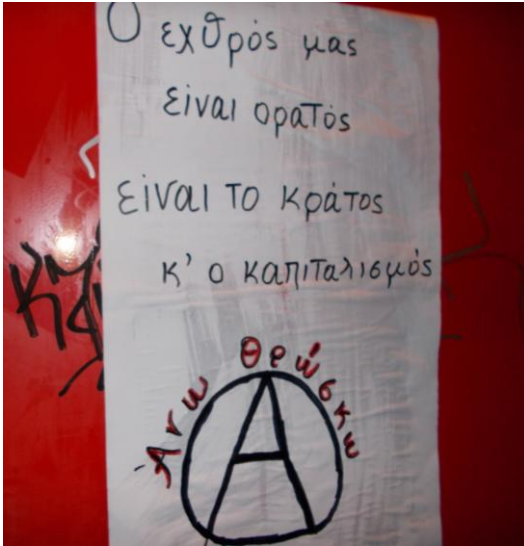 Ο εχθρός μας
είναι ορατός
είναι το κράτος
κ' ο καπιταλισμός
Άνω Θρώσκω
A